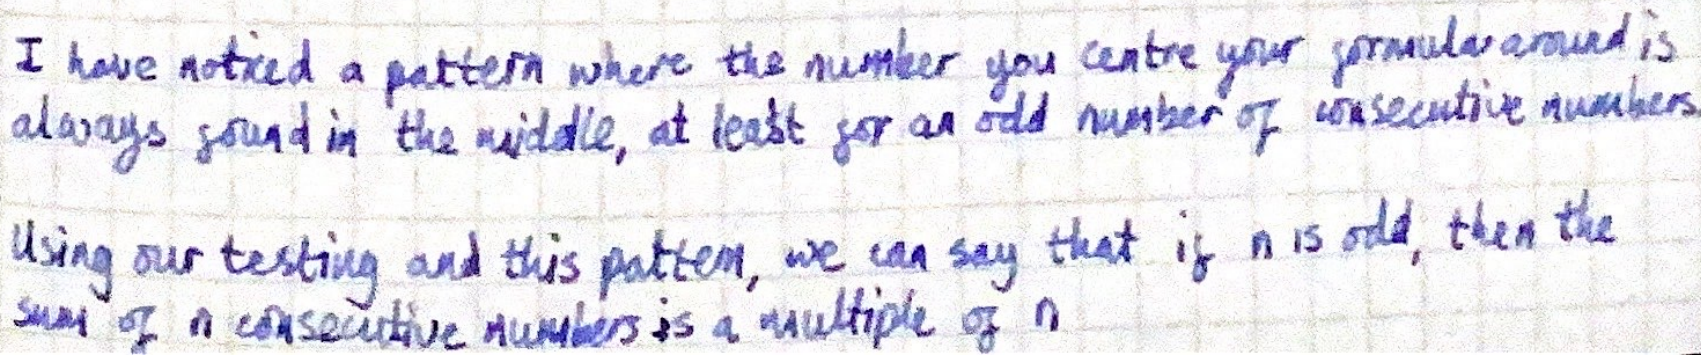 I have noticed a pattern where the number you centre your formula around is
always found in the middle, at least for an odd number of consecutive numbers
Using our testing and this pattern, we can say that if n is odd, then the
sum of n consecutive numbers is a multiple of n